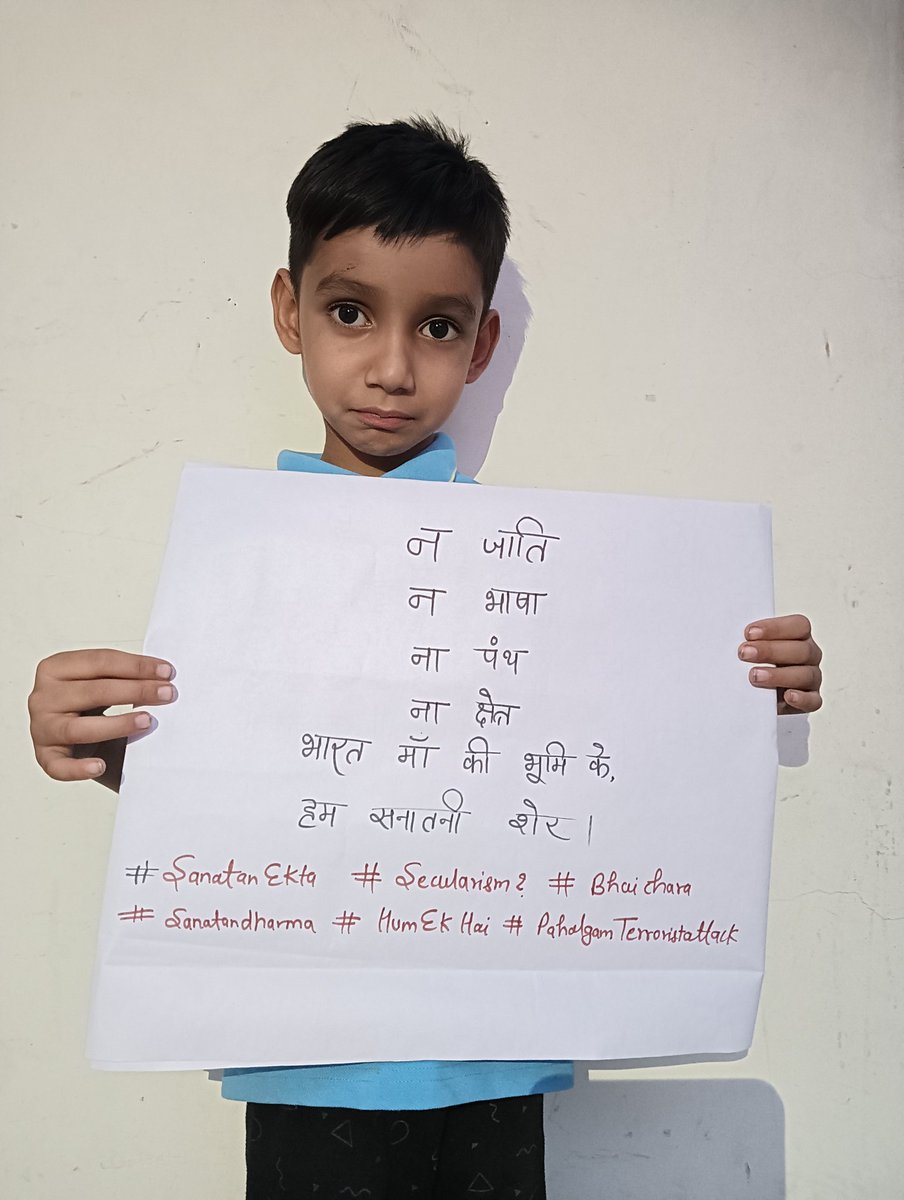 न जाति
न भाषा
ना पंथ
ना क्षेत्र
भारत माँ की भूमि के,
हम सनातनी शेर।
# Sanatan Ekta # Secularism? # Bhai chara
# Sanatandharma # Hum Ek Hai # Pahalgam Terroristattack